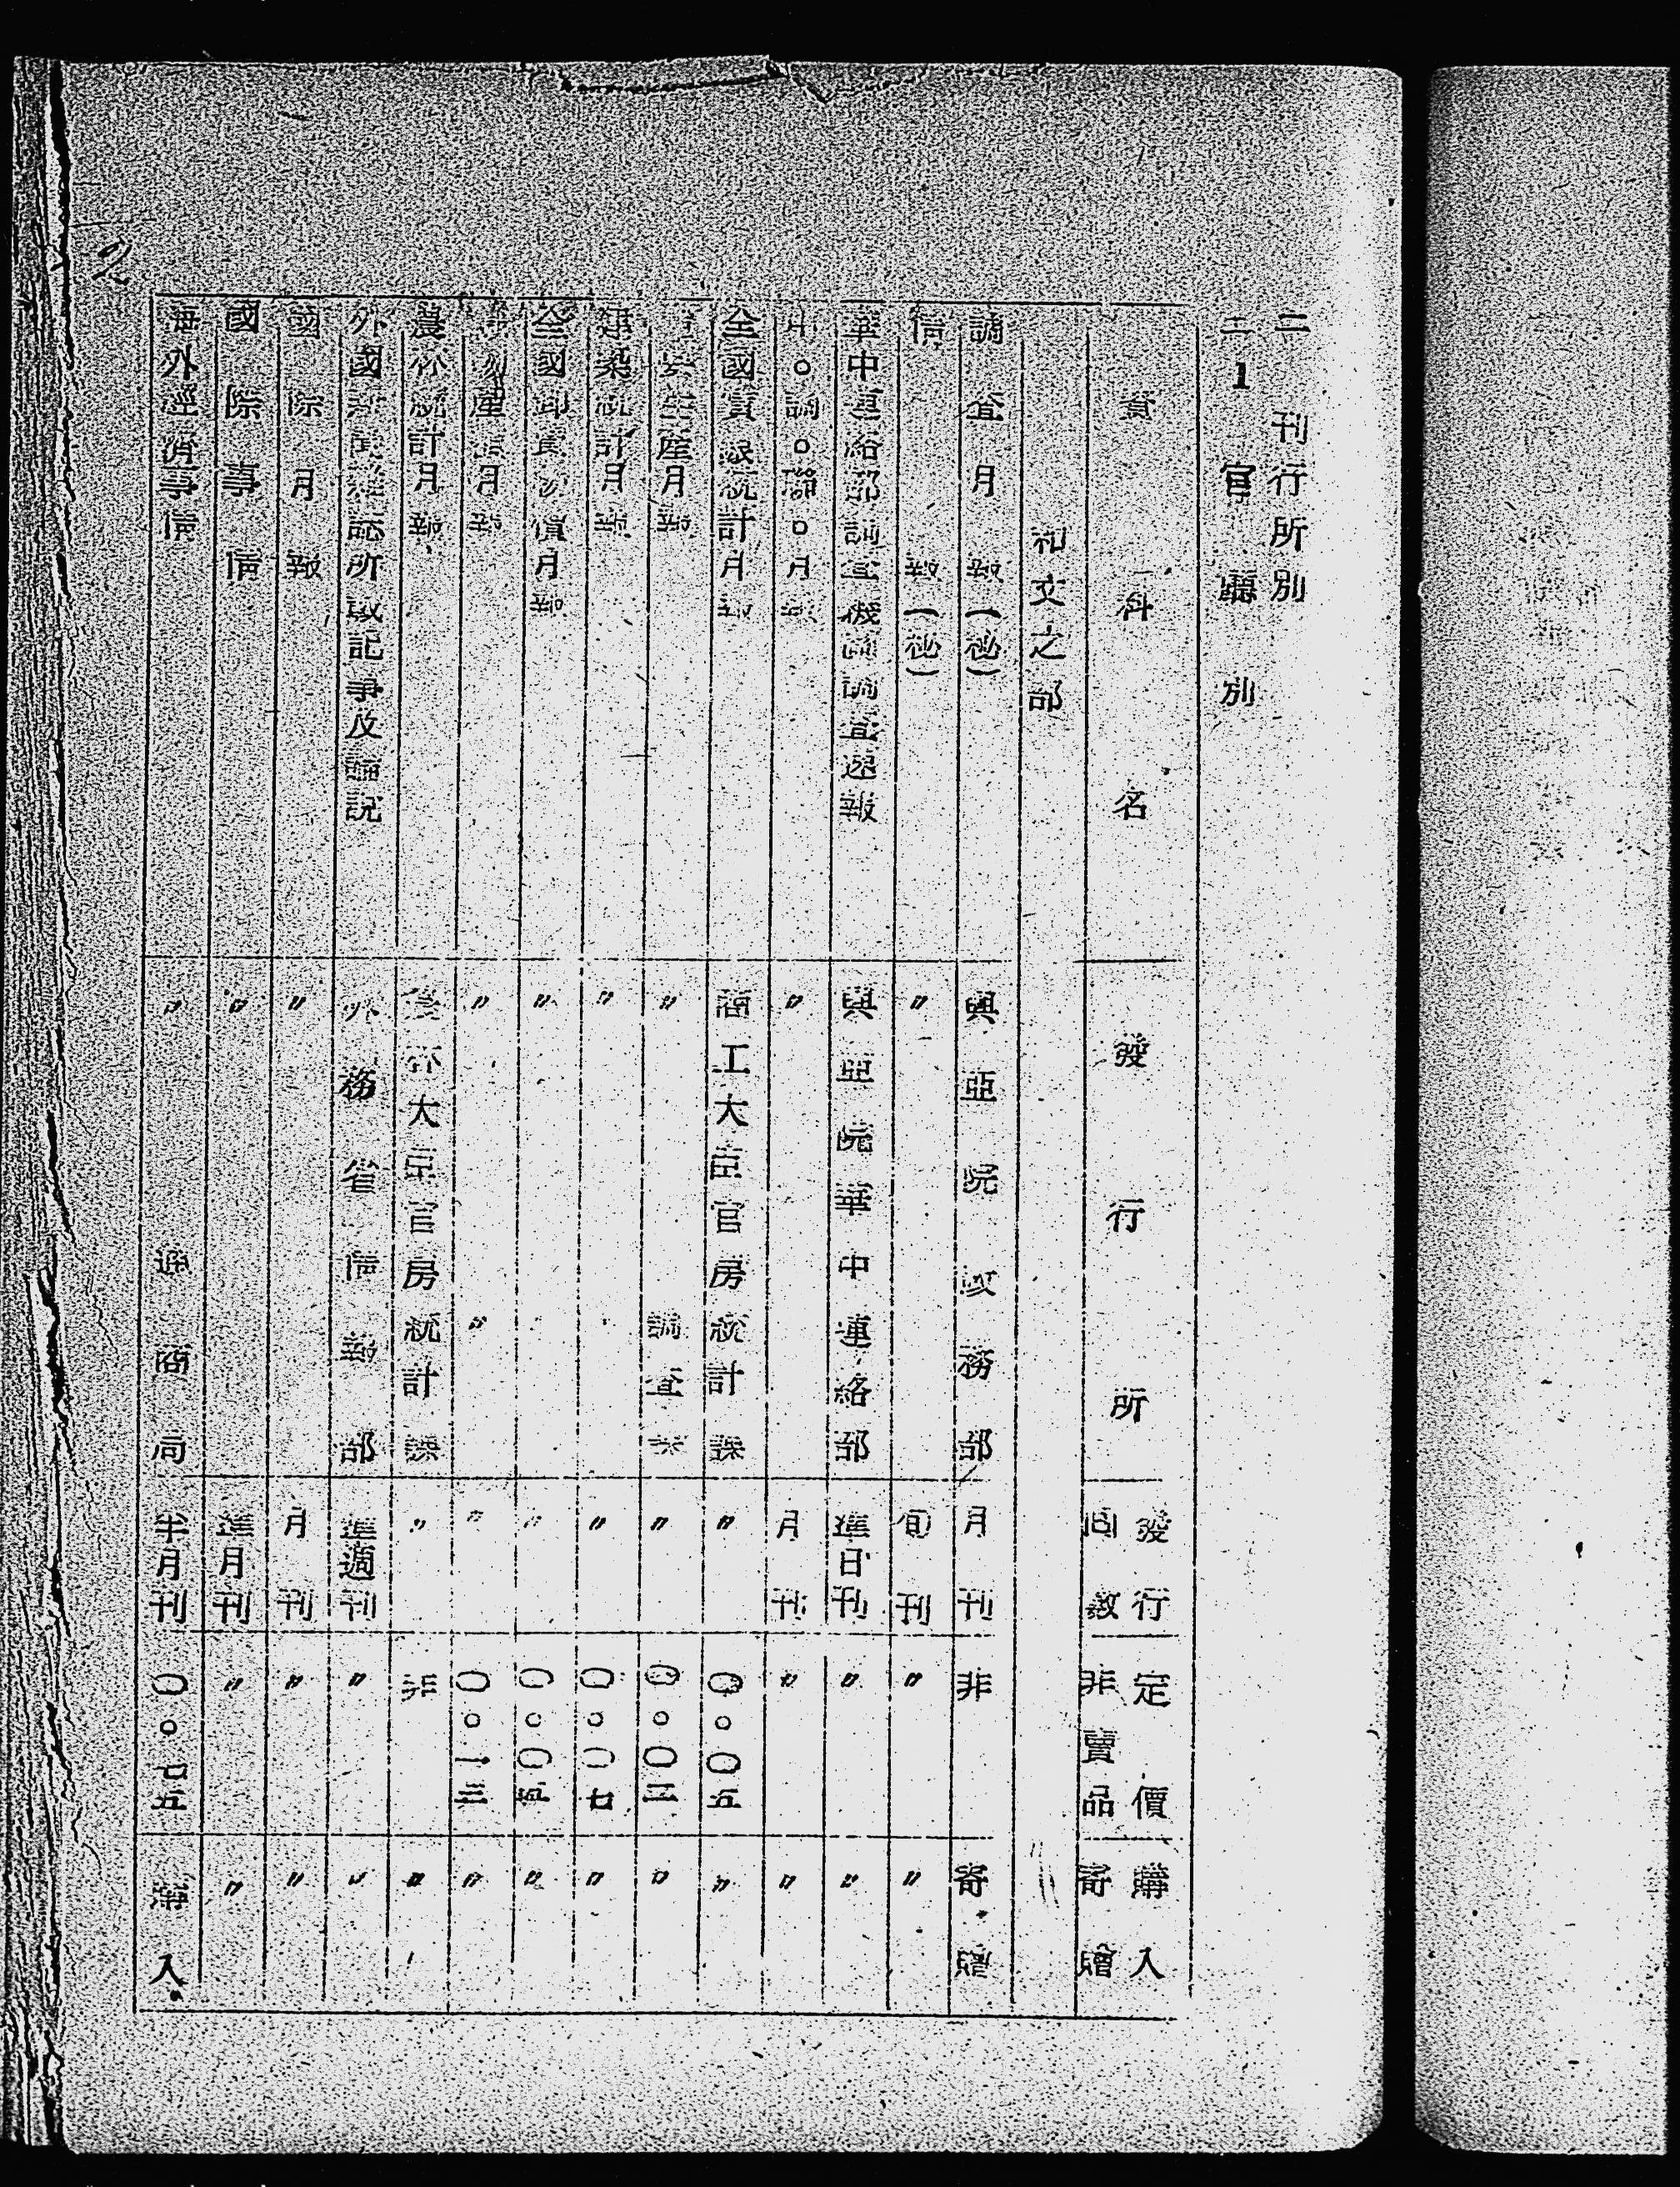 二 刊行所別
二 1 官廳別
資料名 發行所 發行回数 定價 非賣品 購入 寄贈
和文之部
調査月報(秘) 興亞院政務部 月刊 非 寄贈
情報(秘) 〃 旬刊 〃 〃
華中連絡部調査機關調査速報 興亞院華中連絡部 準日刊 〃 〃
〃 月刊 〃 〃
全國賃銀統計月報 商工大臣官房統計課 〃 〇。〇五 〃
生産月報 〃 調査課 〃 〇。〇三 〃
建築統計月報 〃 〃 〇。〇七 〃
全國卸賣物價月報 〃 〃 〇。〇五 〃
産 月報 〃 〃 〃 〇。一三 〃
農林統計月報 農林大臣官房統計課 〃 非 〃
外國新聞雜誌所載記事及論説 外務省情報部 準週刊 〃 〃
國際月報 〃 月刊 〃 〃
國際事情 〃 準月刊 〃 〃
海外經濟事情 〃 通商局 半月刊 〇。七五 購入
2